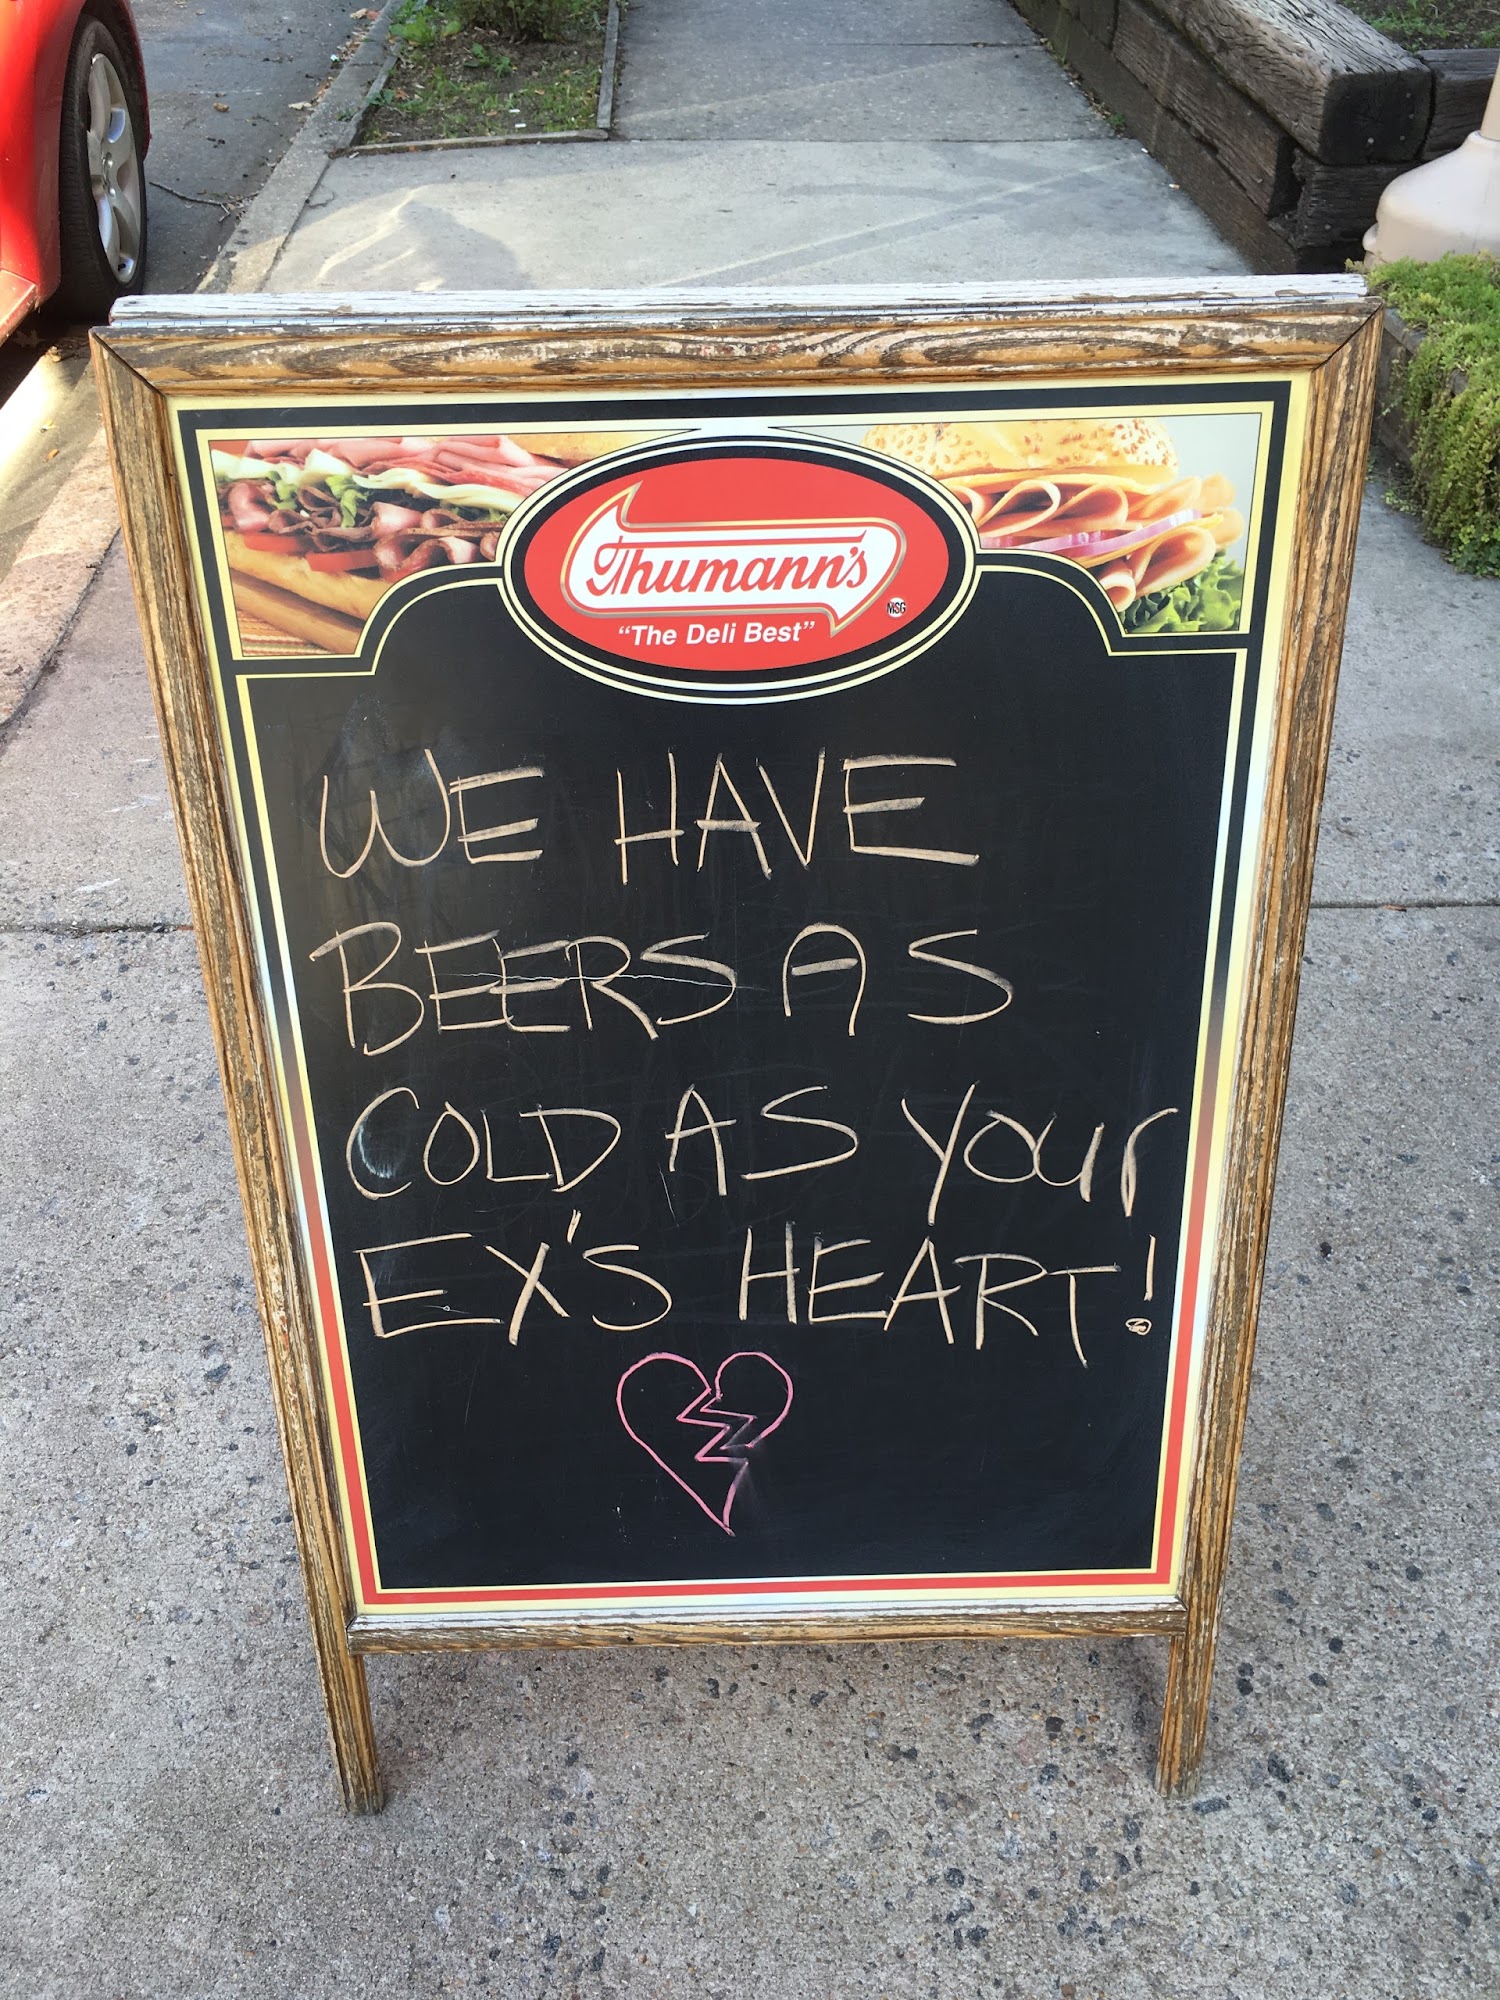 Thumann's
MSG
"The Deli Best"
WE HAVE
BEERS AS
COLD AS YOUr
EX'S HEART!